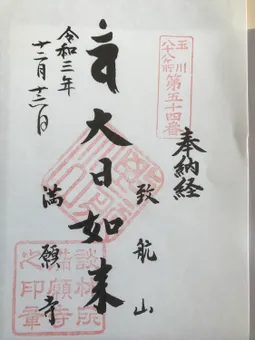 玉川
八十八ヶ所
第五十四番
奉納経
致航山
大日如来
満願寺
令和三年
十二月十三日
談林所
満願寺
之印章